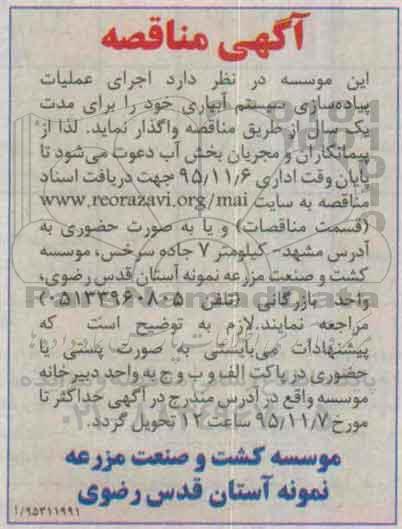 آگهی مناقصه
این موسسه در نظر دارد اجرای عملیات
پیاده‌سازی سیستم آبیاری خود را برای مدت
یک سال از طریق مناقصه واگذار نماید. لذا از
پیمانکاران و مجریان بخش آب دعوت می‌شود تا
پایان وقت اداری ۹۵/۱۱/۶ جهت دریافت اسناد
مناقصه به سایت www.reorazavi.org/mai
(قسمت مناقصات) و یا به صورت حضوری به
آدرس مشهد- کیلومتر ۷ جاده سرخس، موسسه
کشت و صنعت مزرعه نمونه آستان قدس رضوی،
واحد بازرگانی (تلفن ۵-۰۵۱۳۳۹۶۰۸۰)
مراجعه نمایند.لازم به توضیح است که
پیشنهادات می‌بایستی به صورت پستی یا
حضوری در پاکت الف و ب و ج به واحد دبیرخانه
موسسه واقع در آدرس مندرج در آگهی حداکثر تا
مورخ ۹۵/۱۱/۷ ساعت ۱۲ تحویل گردد.
موسسه کشت و صنعت مزرعه
نمونه آستان قدس رضوی
۱/۹۵۳۱۱۹۹۱